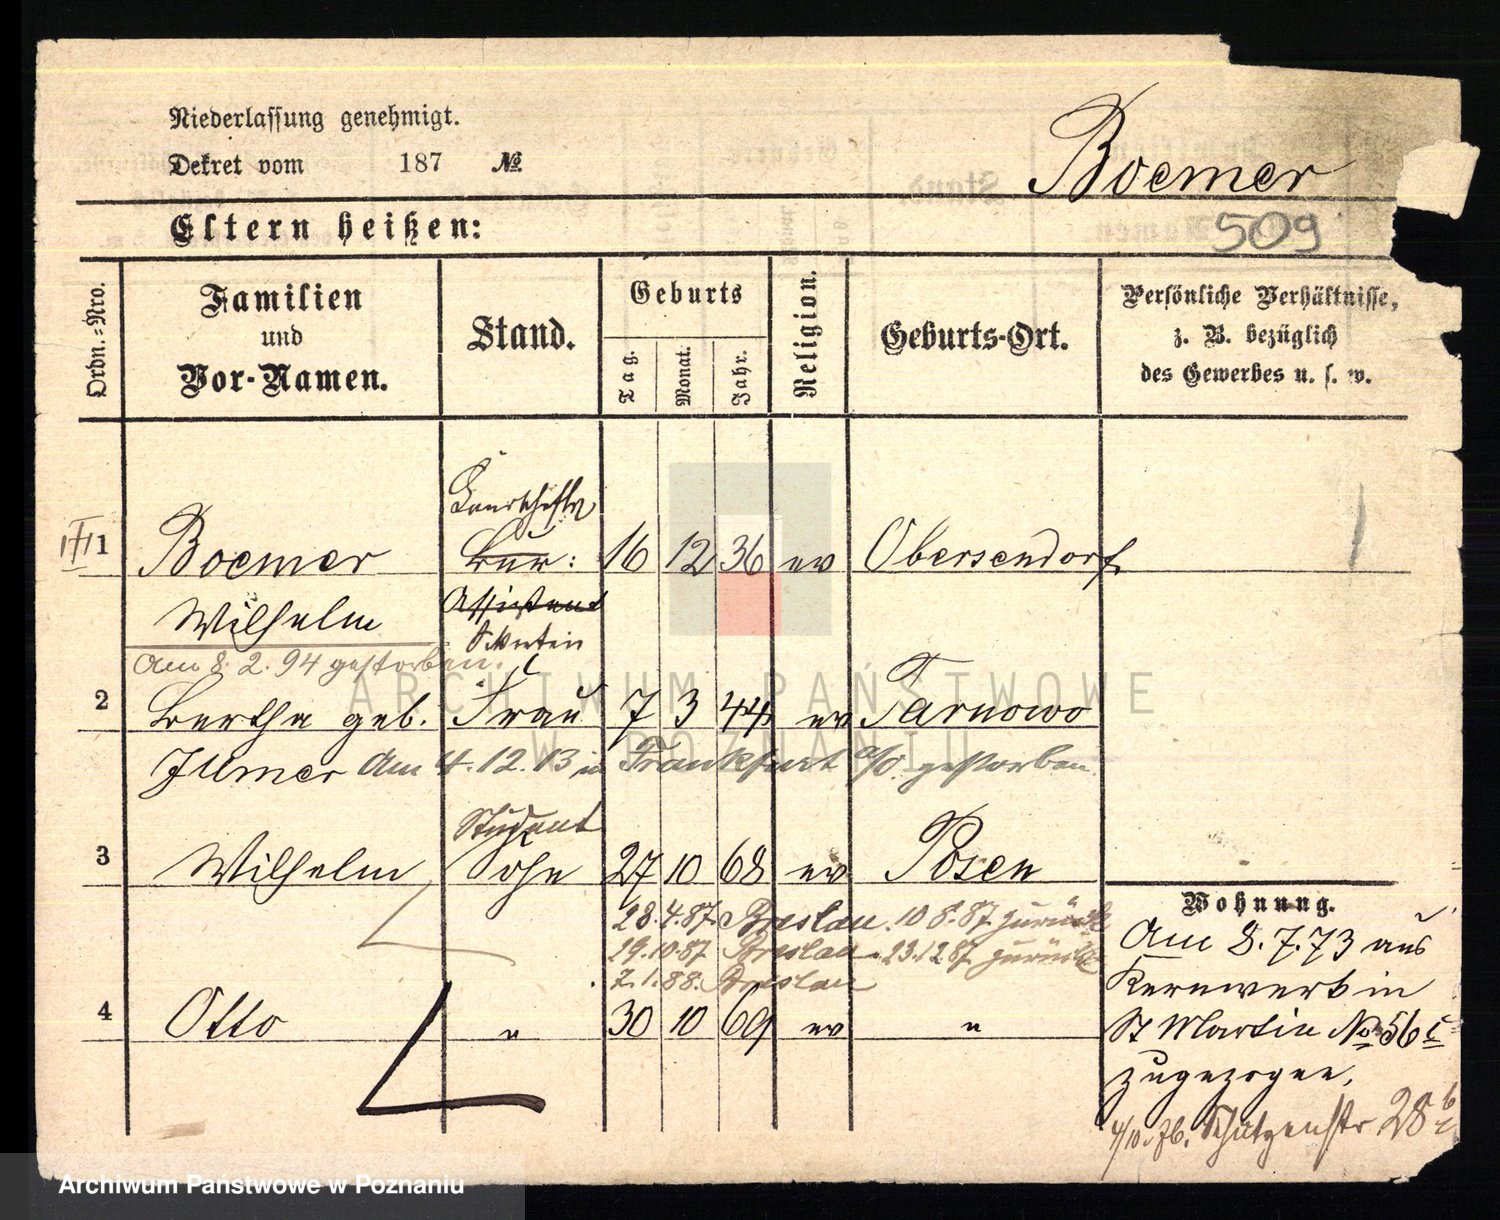 Niederlassung genehmigt.
Dekret vom 187 №
Boemer
Eltern heißen:
509
Ordn.-Nro.
Familien
und
Vor-Namen.
Stand.
Geburts
Tag.
Monat.
Jahr.
Religion.
Geburts-Ort.
Persönliche Verhältnisse,
z. B. bezüglich
des Gewerbes u. s. w.
1 Boemer 16 12 36 ev Obersendorf
Wilhelm Assistent
am 8. 2. 94 gestorben.
2 Bertha geb. Frau 7 3 44 ev Tarnowo
am 4. 12. 13 in Frankfurt a/O. gestorben.
Student
3 Wilhelm Sohn 27 10 68 ev Posen
28.4.87. Breslau. 10 8. 87. zurück
29.10.87 Breslau. 23.12 87 zurück
7.1.88. Breslau
4 Otto " 30 10 69 ev "
Wohnung.
Am 8. 7. 73 aus
Kernwerk in
St Martin № 56
zugezogen.
4/10. Schützenstr 28
ARCHIWUM PAŃSTWOWE
W POZNANIU
Archiwum Państwowe w Poznaniu